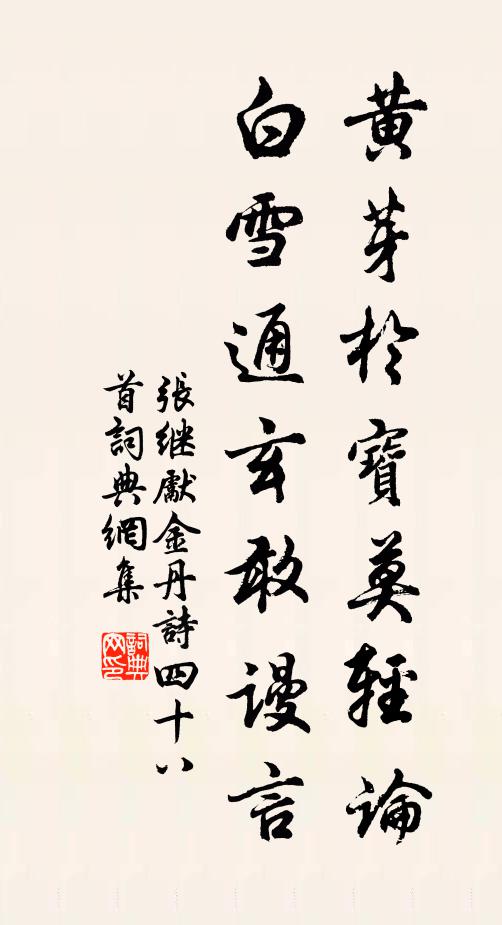 黃芽於寶莫輕論
白雪通玄敢謾言
張继獻金丹詩四十八
首詞典網集
詞典
網印